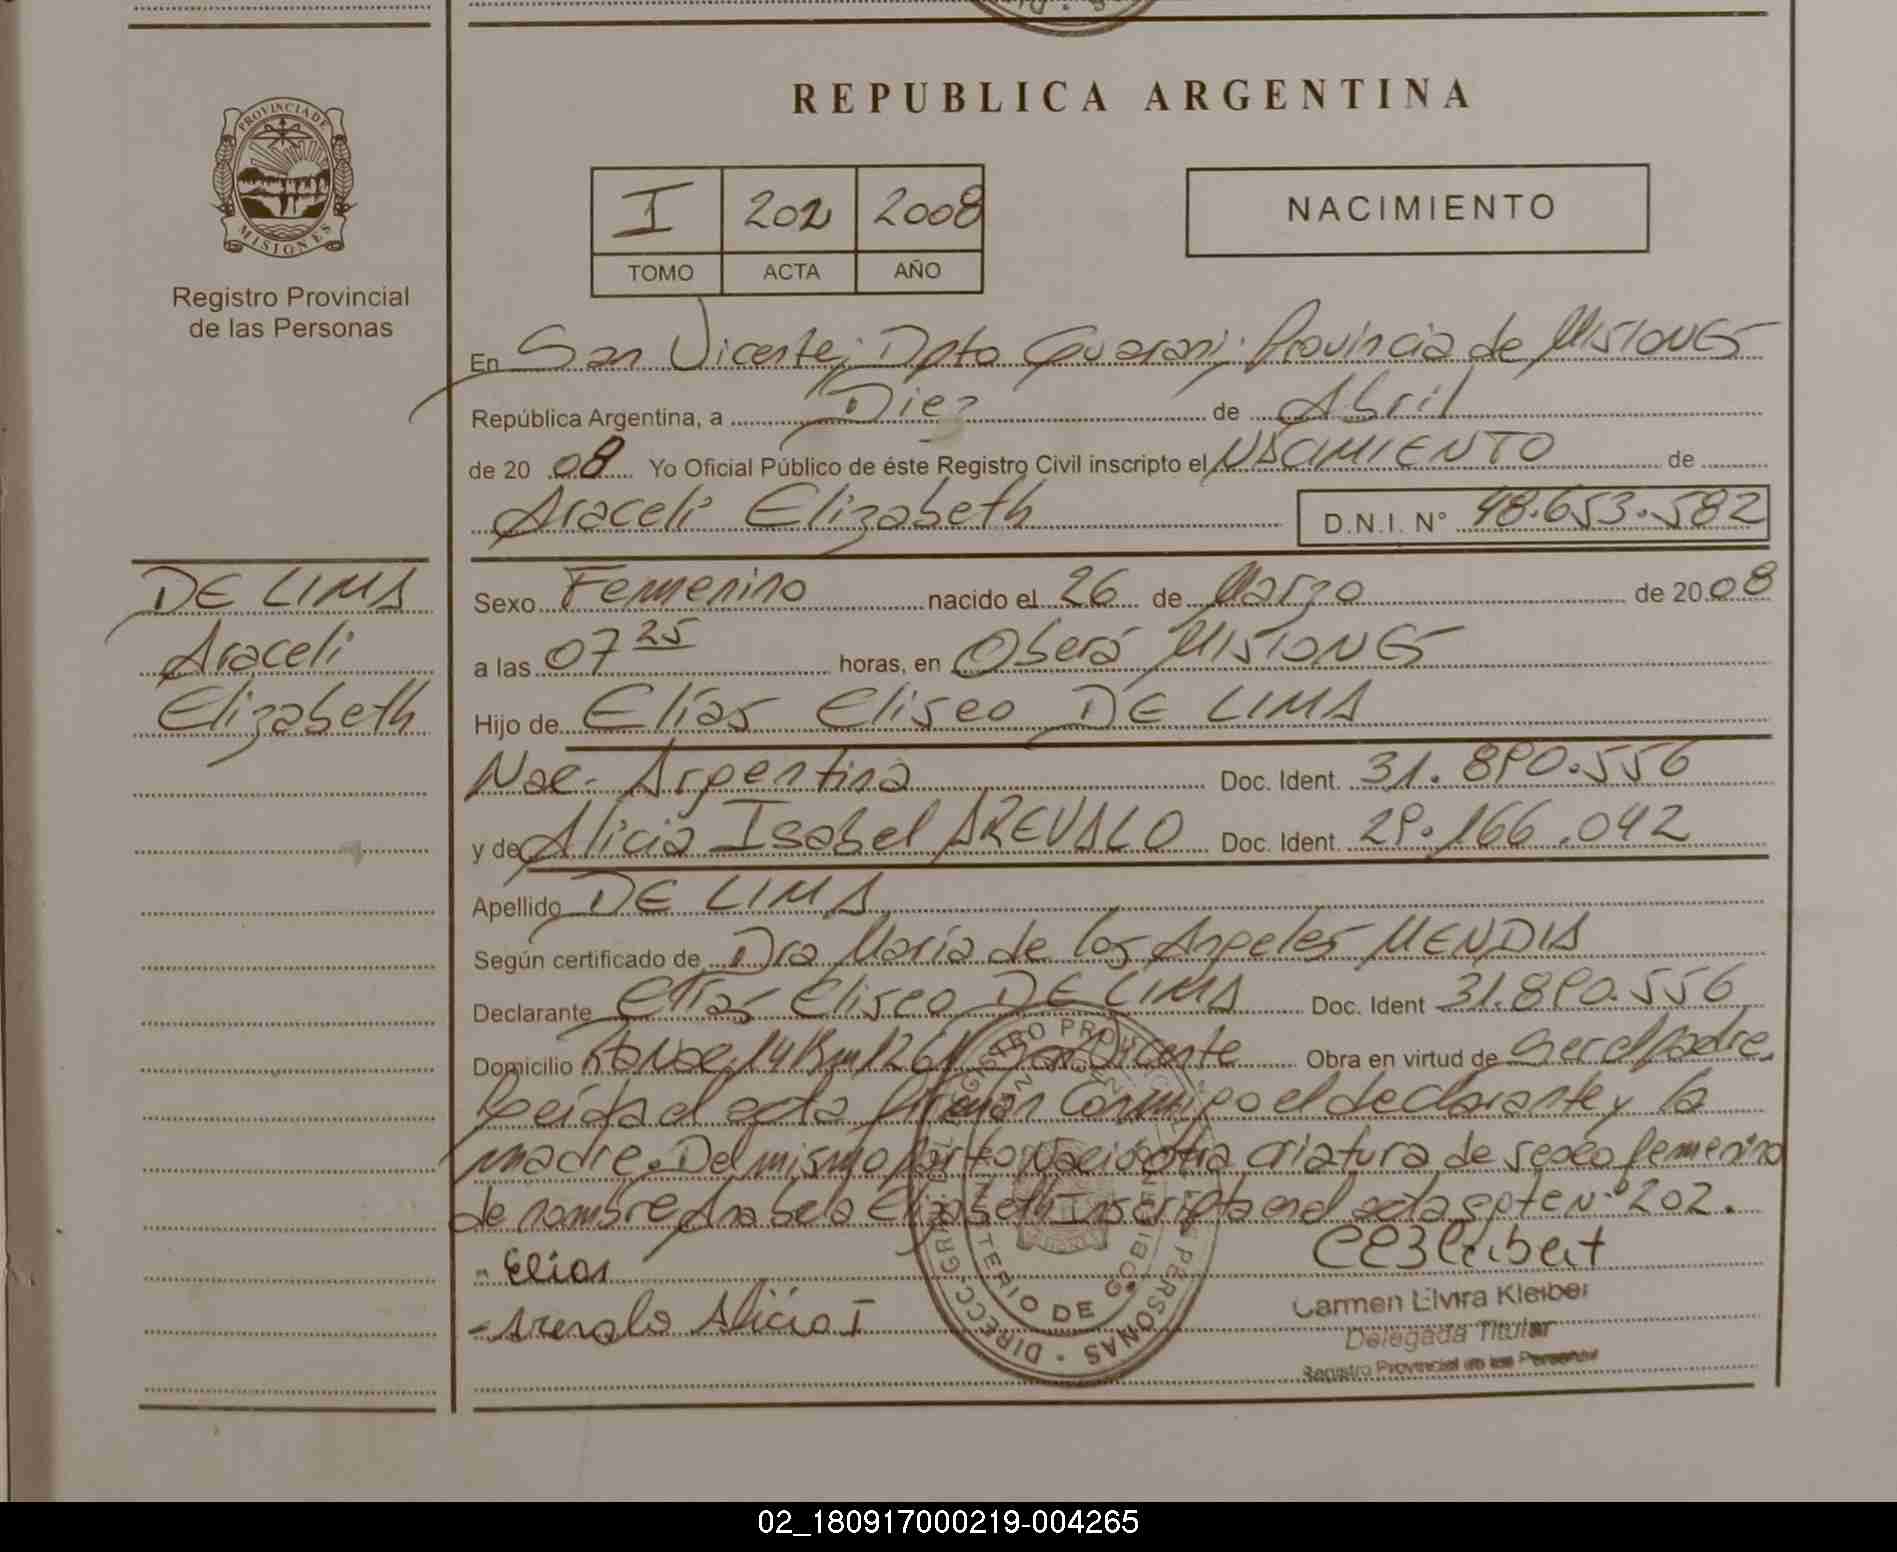 REPUBLICA ARGENTINA
PROVINCIA DE
MISIONES
Registro Provincial
de las Personas
I 202 2008
TOMO ACTA AÑO
NACIMIENTO
En San Vicente, Dpto Guarani; Provincia de MISIONES
República Argentina, a Diez de Abril
de 20 08 Yo Oficial Público de éste Registro Civil inscripto el NACIMIENTO de
Araceli Elizabeth D.N.I. N° 48.653.582
DE LIMA
Araceli
Elizabeth
Sexo Femenino nacido el 26 de Marzo de 20 08
a las 07 25 horas, en Oberá MISIONES
Hijo de Elías Eliseo DE LIMA
Nac. Argentina Doc. Ident. 31.890.556
y de Alicia Isabel AREVALO Doc. Ident. 29.166.042
Apellido DE LIMA
Según certificado de Dra María de los Angeles MENDIA
Declarante Elías Eliseo DE LIMA Doc. Ident 31.890.556
Domicilio 14 Km 126 San Vicente Obra en virtud de Ser el padre.
Leída el acta firman Conmigo el declarante y la
madre. Del mismo parto Nació otra criatura de sexo femenino
de nombre Anabela Elizabeth Inscripta en el acta N° 202.
- Elias
- Arevalo Alicia I
Carmen Elvira Kleiber
Delegada Titular
Registro Provincial de las Personas
02_180917000219-004265